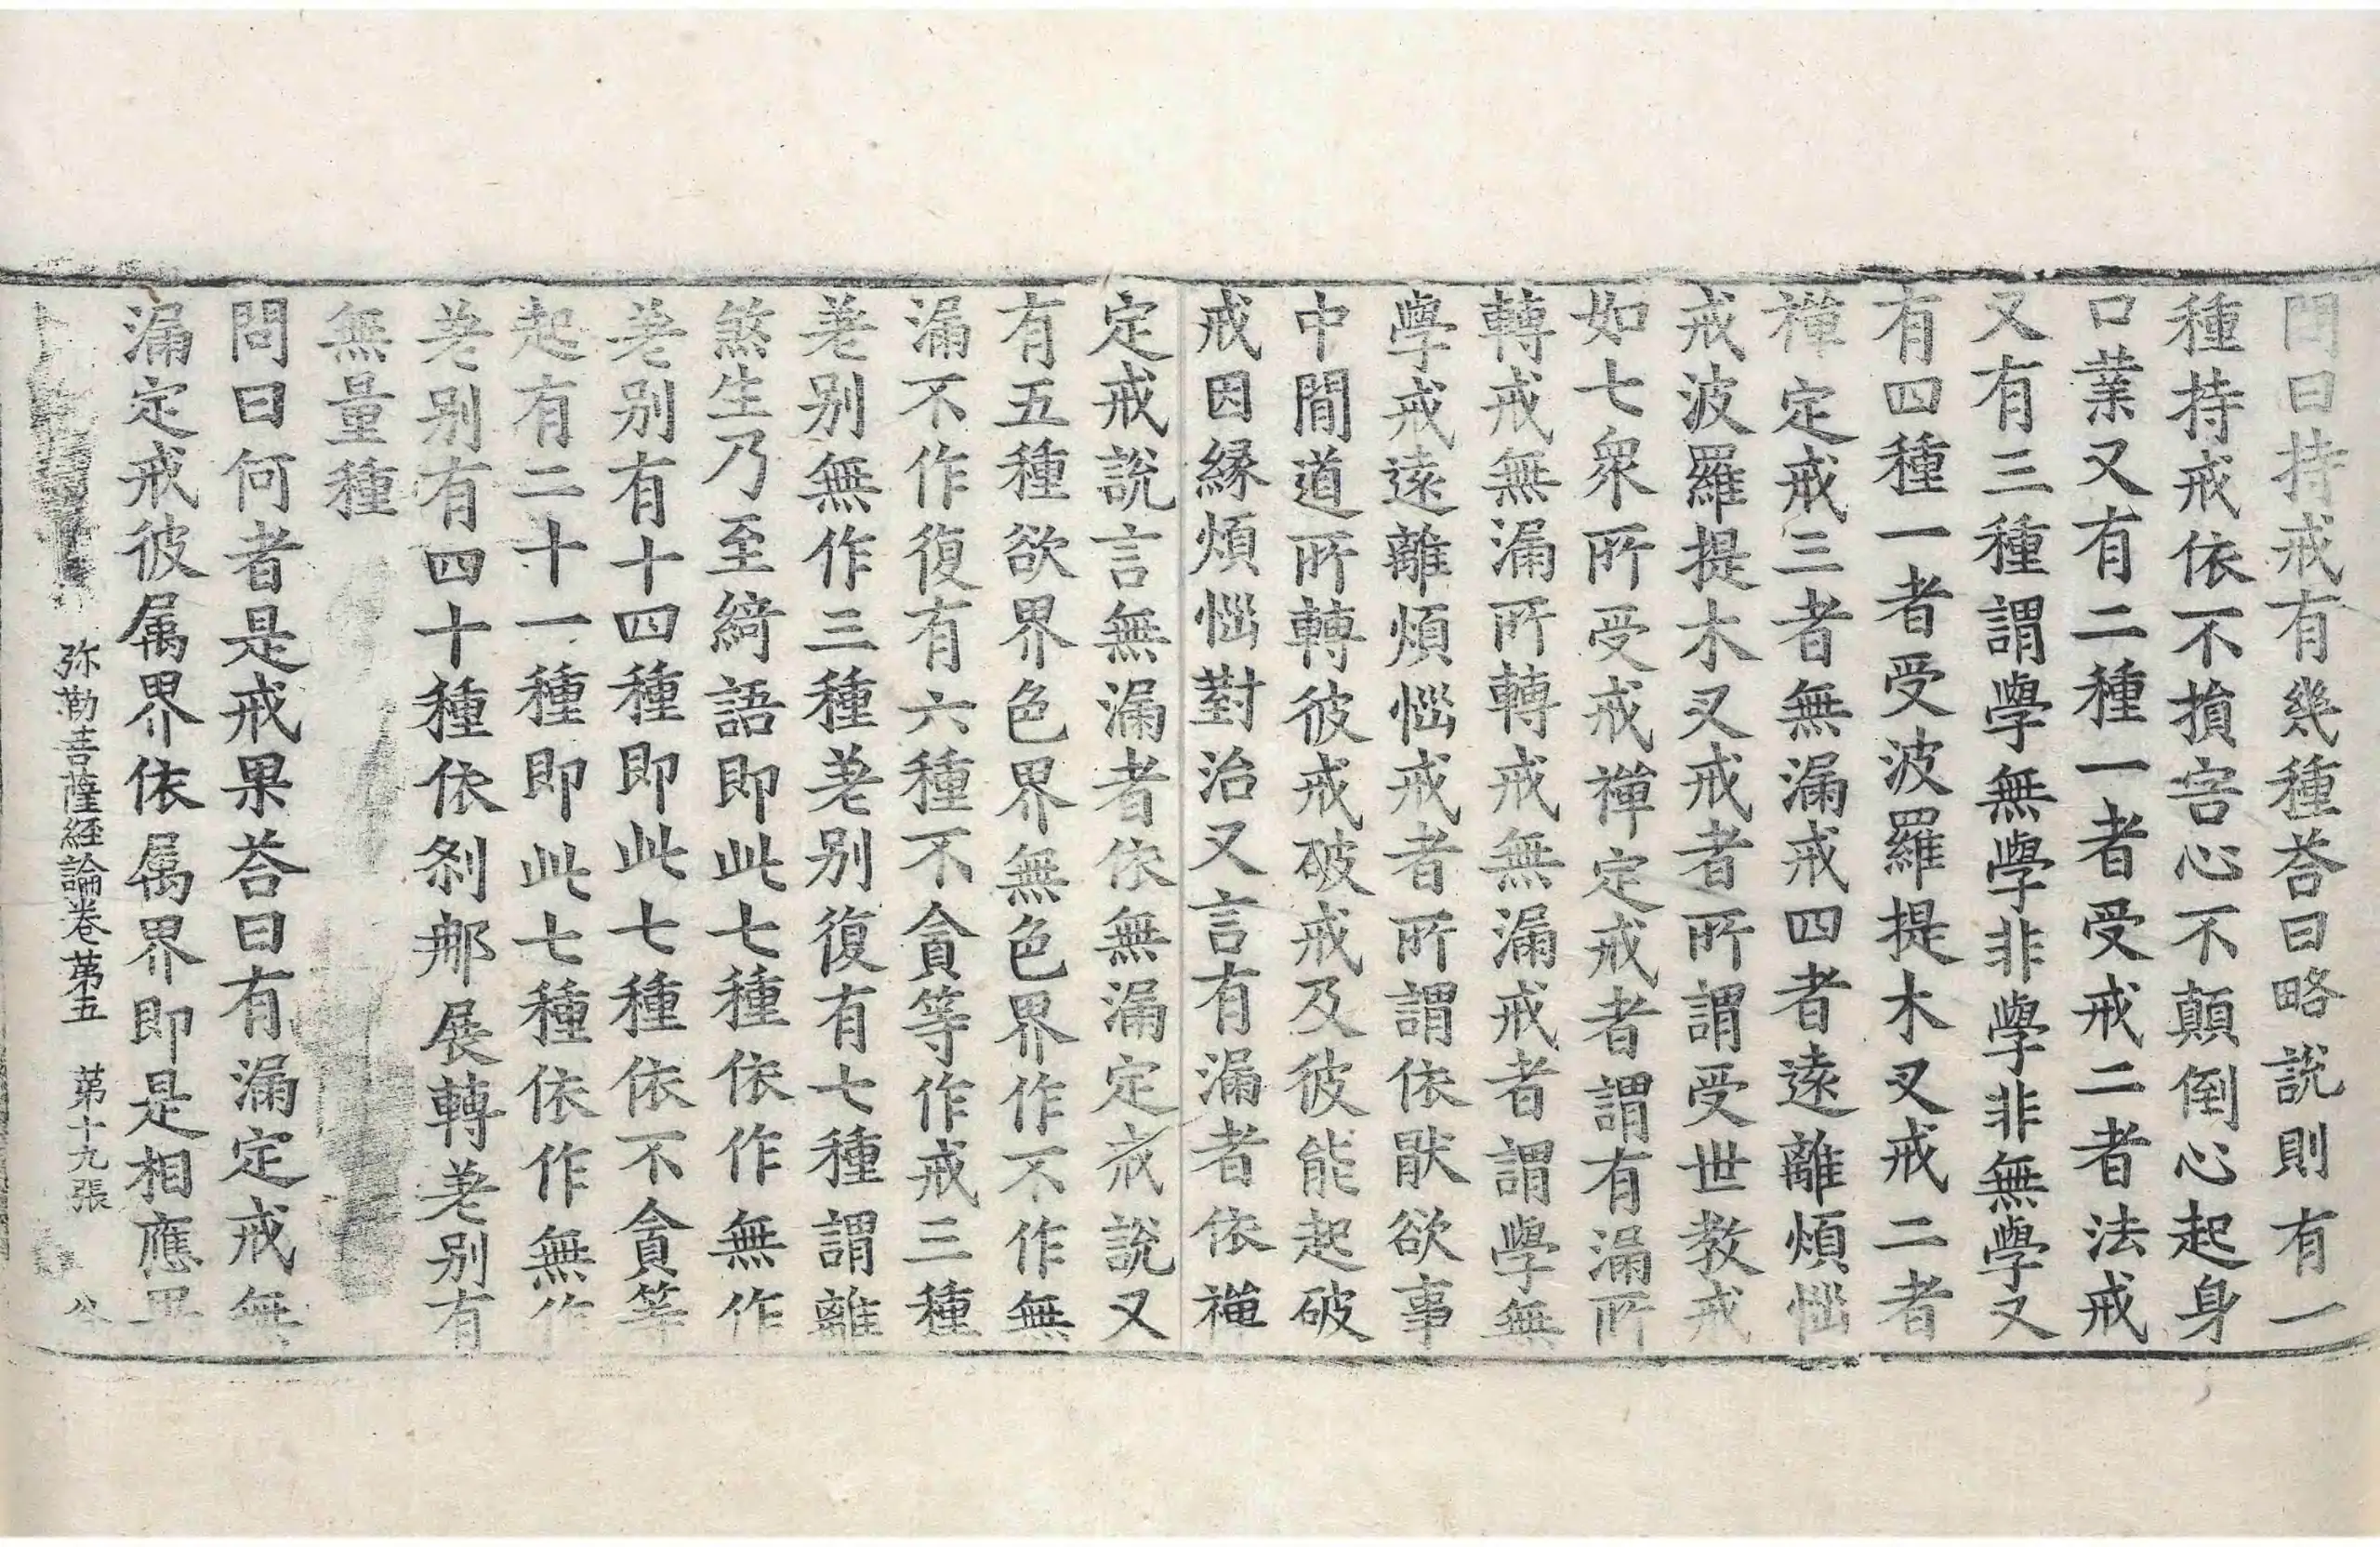 問曰持戒有幾種荅曰略說則有一
種持戒依不損害心不顛倒心起身
口業又有二種一者受戒二者法戒
又有三種謂學無學非學非無學又
有四種一者受波羅提木叉戒二者
禪定戒三者無漏戒四者遠離煩惱
戒波羅提木叉戒者所謂受世教戒
如七衆所受戒禪定戒者謂有漏所
轉戒無漏所轉戒無漏戒者謂學無
學戒遠離煩惱戒者所謂依猒欲事
中間道所轉彼戒破戒及彼能起破
戒因緣煩惱對治又言有漏者依禪
定戒說言無漏者依無漏定戒說又
有五種欲界色界無色界作不作無
漏不作復有六種不貪等作戒三種
差别無作三種差别復有七種謂離
煞生乃至綺語即此七種依作無作
差别有十四種即此七種依不貪等
起有二十一種即此七種依作無作
差别有四十種依刹那展轉差别有
無量種
問曰何者是戒果荅曰有漏定戒無
漏定戒彼属界依属界即是相應果
弥勒菩薩經論卷第五 第十九張